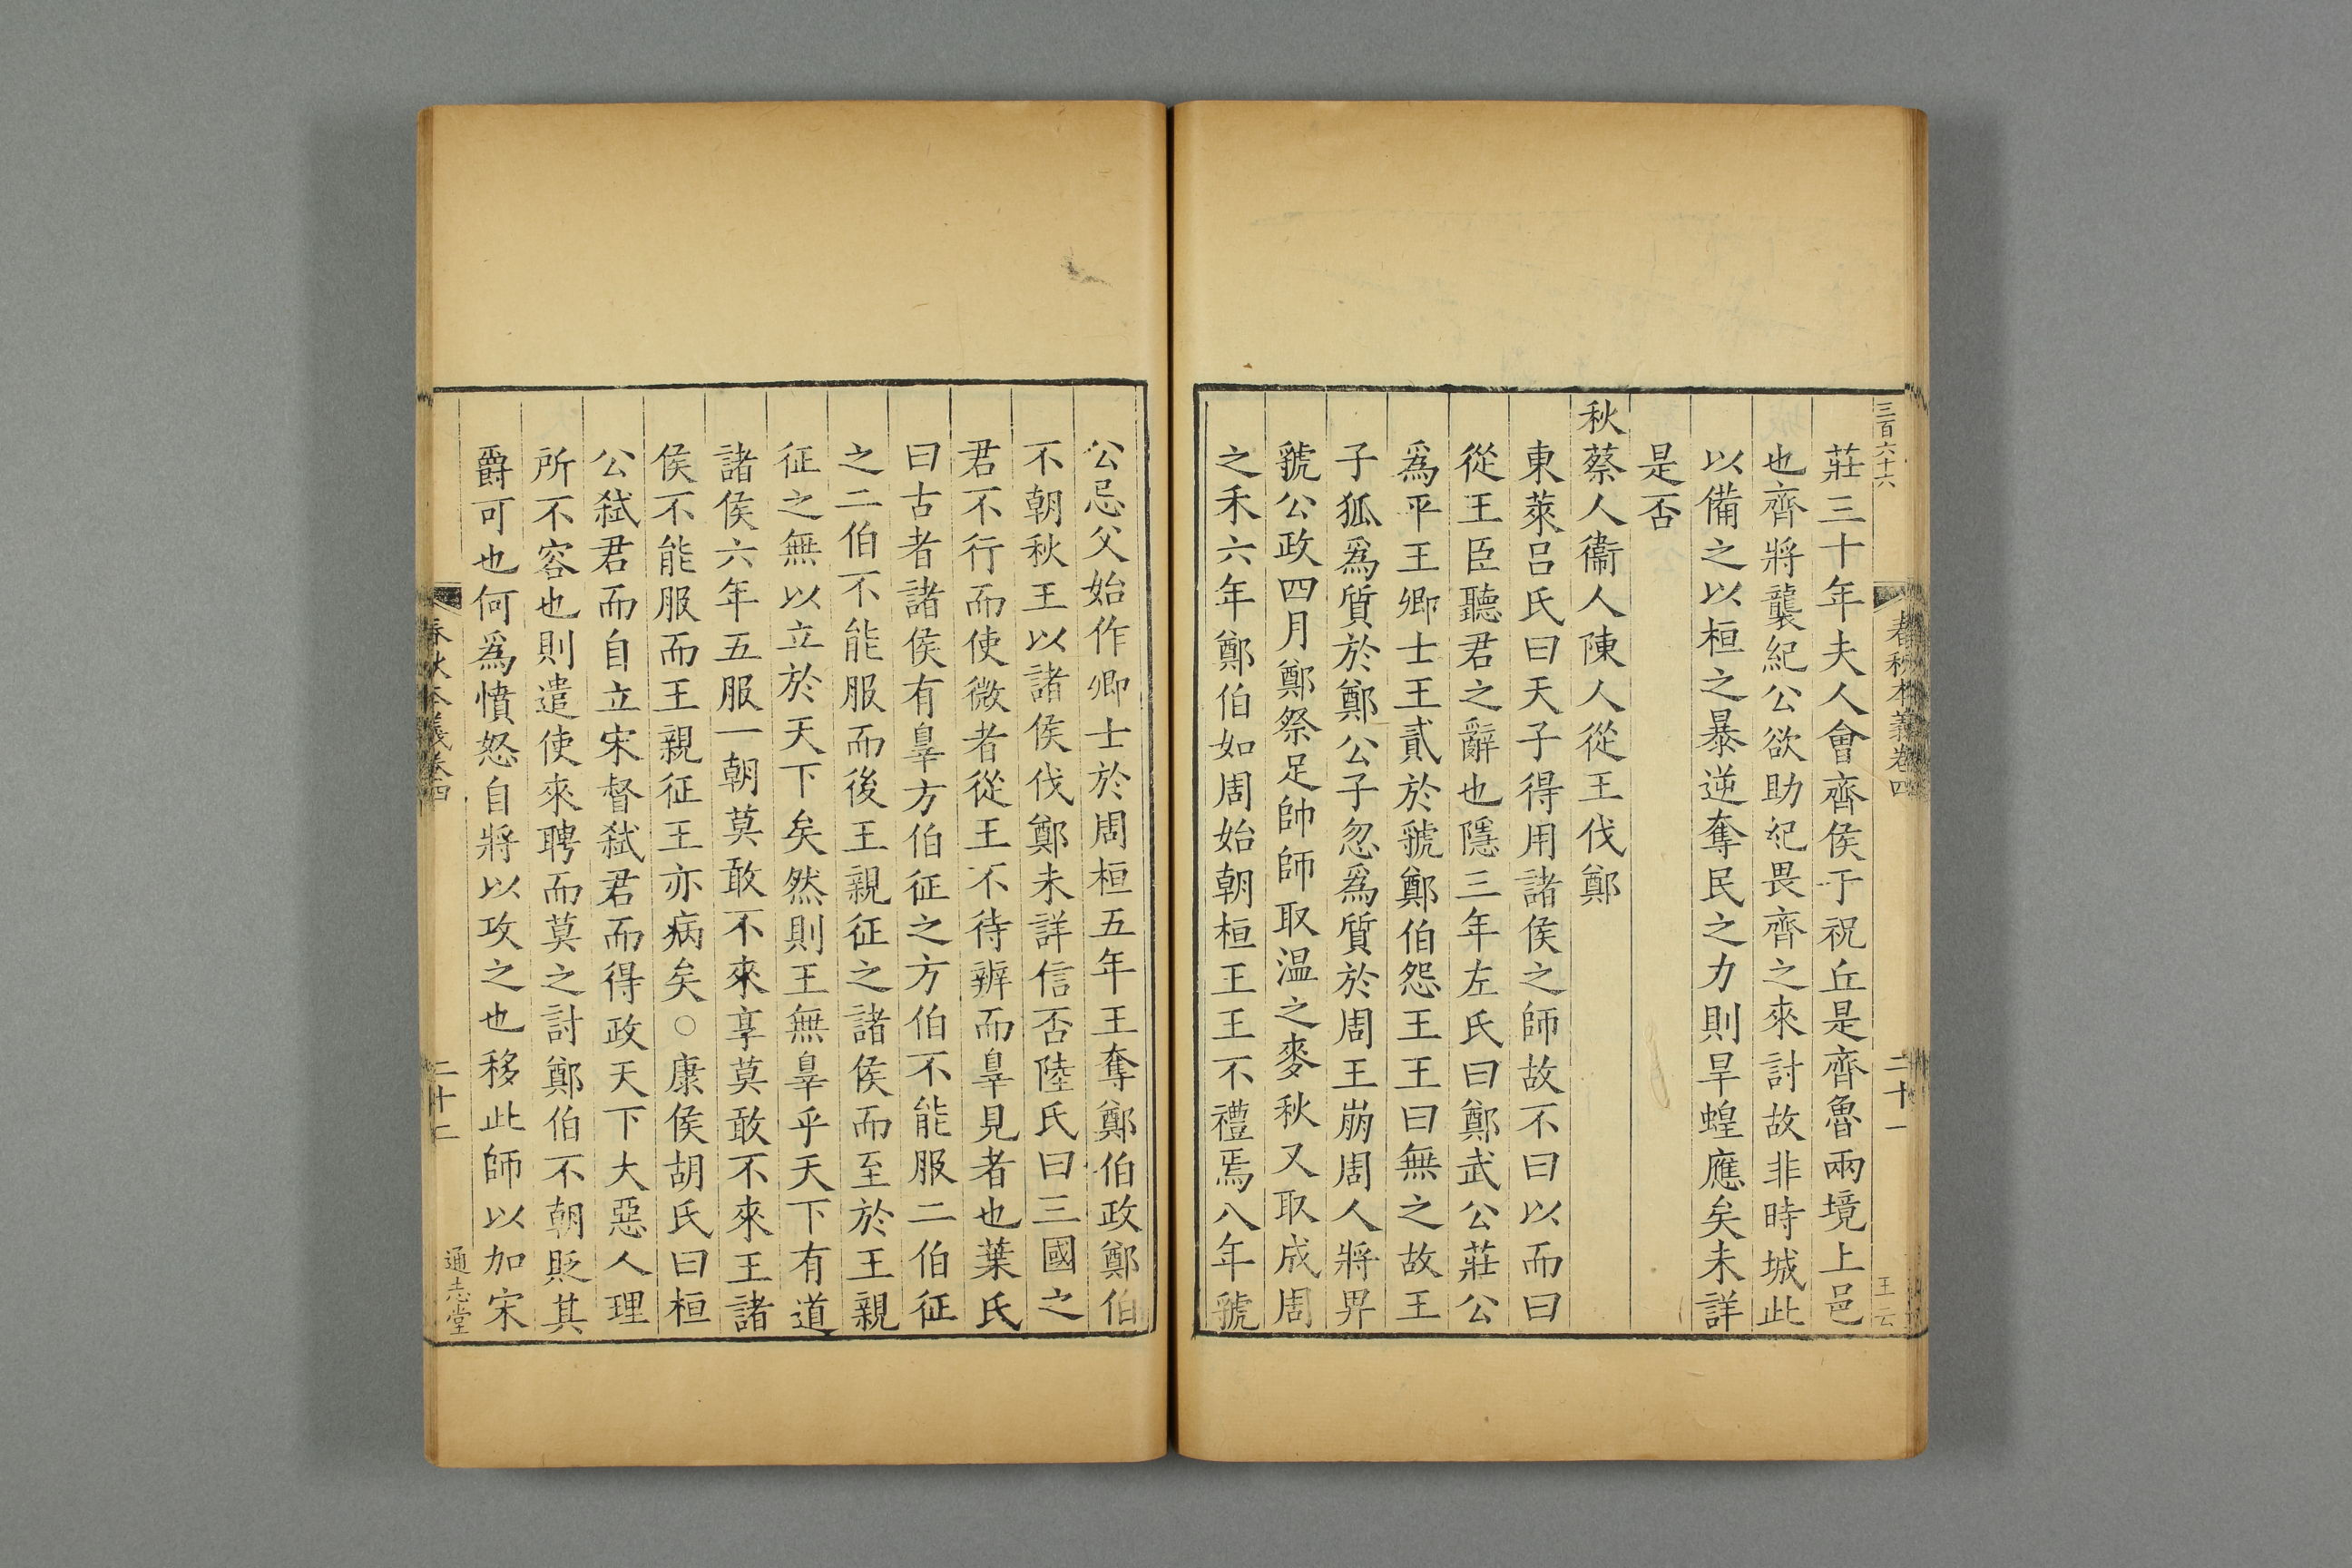 三百六十六
春秋本義卷四
二十一
王云
莊三十年夫人會齊侯于祝丘是齊魯兩境上邑
也齊將襲紀公欲助紀畏齊之來討故非時城此
以備之以桓之暴逆奪民之力則旱蝗應矣未詳
是否
秋蔡人衞人陳人從王伐鄭
東萊呂氏曰天子得用諸侯之師故不曰以而曰
從王臣聽君之辭也隱三年左氏曰鄭武公莊公
爲平王卿士王貳於虢鄭伯怨王王曰無之故王
子狐爲質於鄭公子忽爲質於周王崩周人將畀
虢公政四月鄭祭足帥師取溫之麥秋又取成周
之禾六年鄭伯如周始朝桓王王不禮焉八年虢
公忌父始作卿士於周桓五年王奪鄭伯政鄭伯
不朝秋王以諸侯伐鄭未詳信否陸氏曰三國之
君不行而使微者從王不待辨而辠見者也葉氏
曰古者諸侯有辠方伯征之方伯不能服二伯征
之二伯不能服而後王親征之諸侯而至於王親
征之無以立於天下矣然則王無辠乎天下有道
諸侯六年五服一朝莫敢不來享莫敢不來王諸
侯不能服而王親征王亦病矣○康侯胡氏曰桓
公弒君而自立宋督弒君而得政天下大惡人理
所不容也則遣使來聘而莫之討鄭伯不朝貶其
爵可也何爲憤怒自將以攻之也移此師以加宋
春秋本義卷四
二十二
通志堂